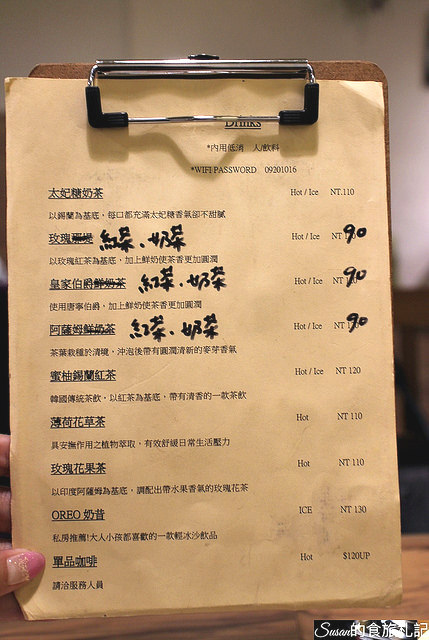 Drinks
*內用低消 人/飲料
*WIFI PASSWORD 09201016
太妃糖奶茶 Hot / Ice NT.110
以錫蘭為基底，每口都充滿太妃糖香氣卻不甜膩
玫瑰 紅茶、奶茶 Hot / Ice NT 90
以玫瑰紅茶為基底，加上鮮奶使茶香更加圓潤
皇家伯爵鮮奶茶 紅茶、奶茶 Hot / Ice NT 90
使用唐寧伯爵，加上鮮奶使茶香更加圓潤
阿薩姆鮮奶茶 紅茶、奶茶 Hot / Ice NT 90
茶葉栽種於清境，沖泡後帶有圓潤清新的麥芽香氣
蜜柚錫蘭紅茶 Hot / Ice NT 120
韓國傳統茶飲，以紅茶為基底，帶有清香的一款茶飲
薄荷花草茶 Hot NT 110
具安撫作用之植物萃取，有效舒緩日常生活壓力
玫瑰花果茶 Hot NT 110
以印度阿薩姆為基底，調配出帶水果香氣的玫瑰花茶
OREO 奶昔 ICE NT 130
私房推薦!大人小孩都喜歡的一款輕冰沙飲品
單品咖啡 Hot $120UP
請洽服務人員
Susan的食旅札記